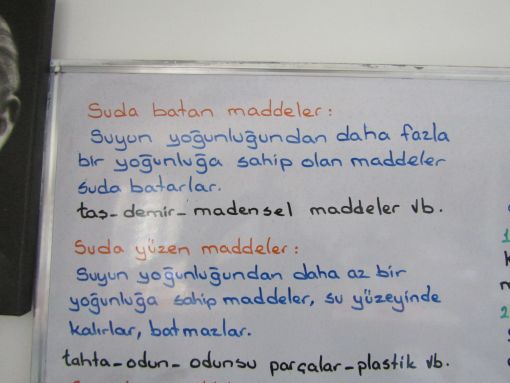 Suda batan maddeler:
Suyun yoğunluğundan daha fazla
bir yoğunluğa sahip olan maddeler
suda batarlar.
taş-demir-madensel maddeler vb.
Suda yüzen maddeler:
Suyun yoğunluğundan daha az bir
yoğunluğa sahip maddeler, su yüzeyinde
kalırlar, batmazlar.
tahta-odun-odunsu parçalar-plastik vb.